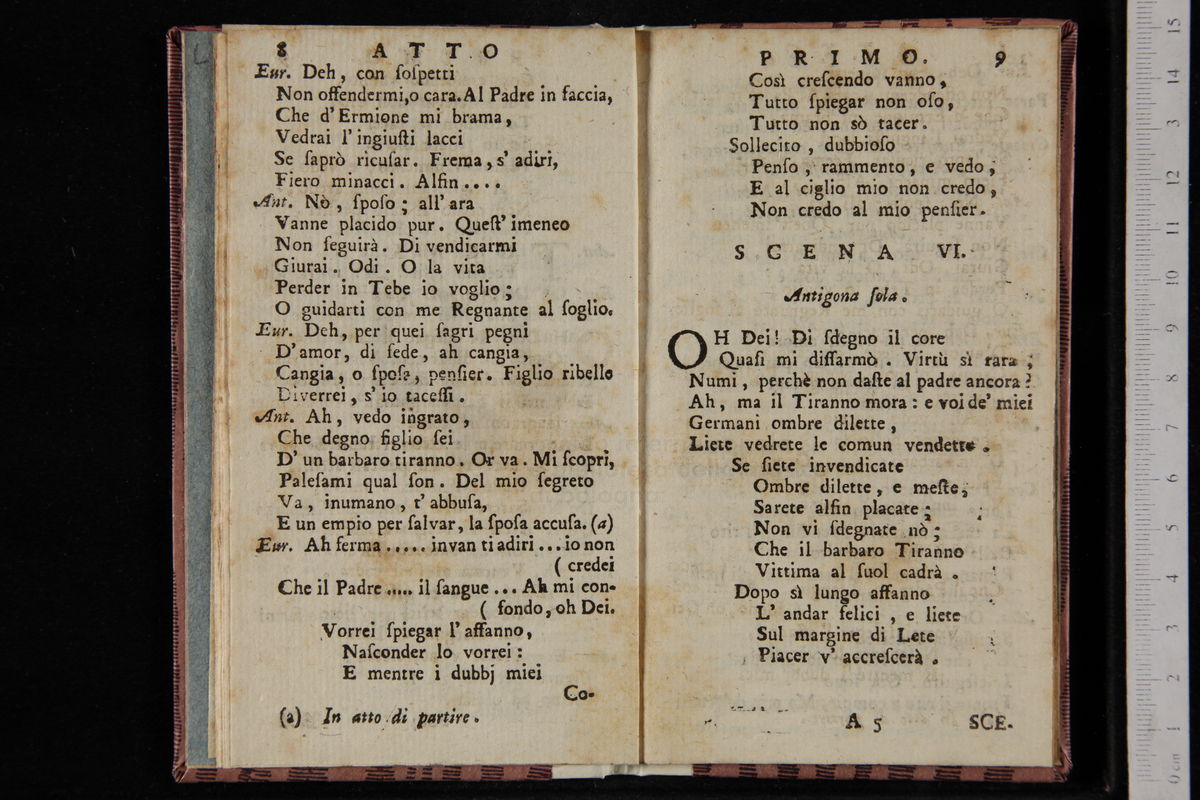 8 ATTO
Eur. Deh, con ſoſpetti
Non offendermi, o cara. Al Padre in faccia,
Che d'Ermione mi brama,
Vedrai l'ingiuſti lacci
Se ſaprò ricuſar. Frema, s'adiri,
Fiero minacci. Alfin....
Ant. Nò, ſpoſo; all'ara
Vanne placido pur. Queſt'imeneo
Non ſeguirà. Di vendicarmi
Giurai. Odi. O la vita
Perder in Tebe io voglio;
O guidarti con me Regnante al ſoglio.
Eur. Deh, per quei ſagri pegni
D'amor, di fede, ah cangia,
Cangia, o ſpoſa, penſier. Figlio ribelle
Diverrei, s'io taceſſi.
Ant. Ah, vedo ingrato,
Che degno figlio ſei
D'un barbaro tiranno. Or va. Mi ſcopri,
Paleſami qual ſon. Del mio ſegreto
Va, inumano, t'abbuſa,
E un empio per ſalvar, la ſpoſa accuſa. (a)
Eur. Ah ferma..... invan ti adiri... io non
( credei
Che il Padre..... il ſangue... Ah mi con-
( fondo, oh Dei.
Vorrei ſpiegar l'affanno,
Naſconder lo vorrei:
E mentre i dubbj miei
Co-
(a) In atto di partire.
PRIMO. 9
Così creſcendo vanno,
Tutto ſpiegar non oſo,
Tutto non sò tacer.
Sollecito, dubbioſo
Penſo, rammento, e vedo,
E al ciglio mio non credo,
Non credo al mio penſier.
SCENA VI.
Antigona ſola.
OH Dei! Di ſdegno il core
Quaſi mi diſſarmò. Virtù sì rara;
Numi, perchè non daſte al padre ancora?
Ah, ma il Tiranno mora: e voi de' miei
Germani ombre dilette,
Liete vedrete le comun vendette.
Se ſiete invendicate
Ombre dilette, e meſte,
Sarete alfin placate;
Non vi ſdegnate nò;
Che il barbaro Tiranno
Vittima al ſuol cadrà.
Dopo sì lungo affanno
L'andar felici, e liete
Sul margine di Lete
Piacer v'accreſcerà.
A 5 SCE.
15
14
13
12
11
10
9
8
7
6
5
4
3
2
1
0 cm